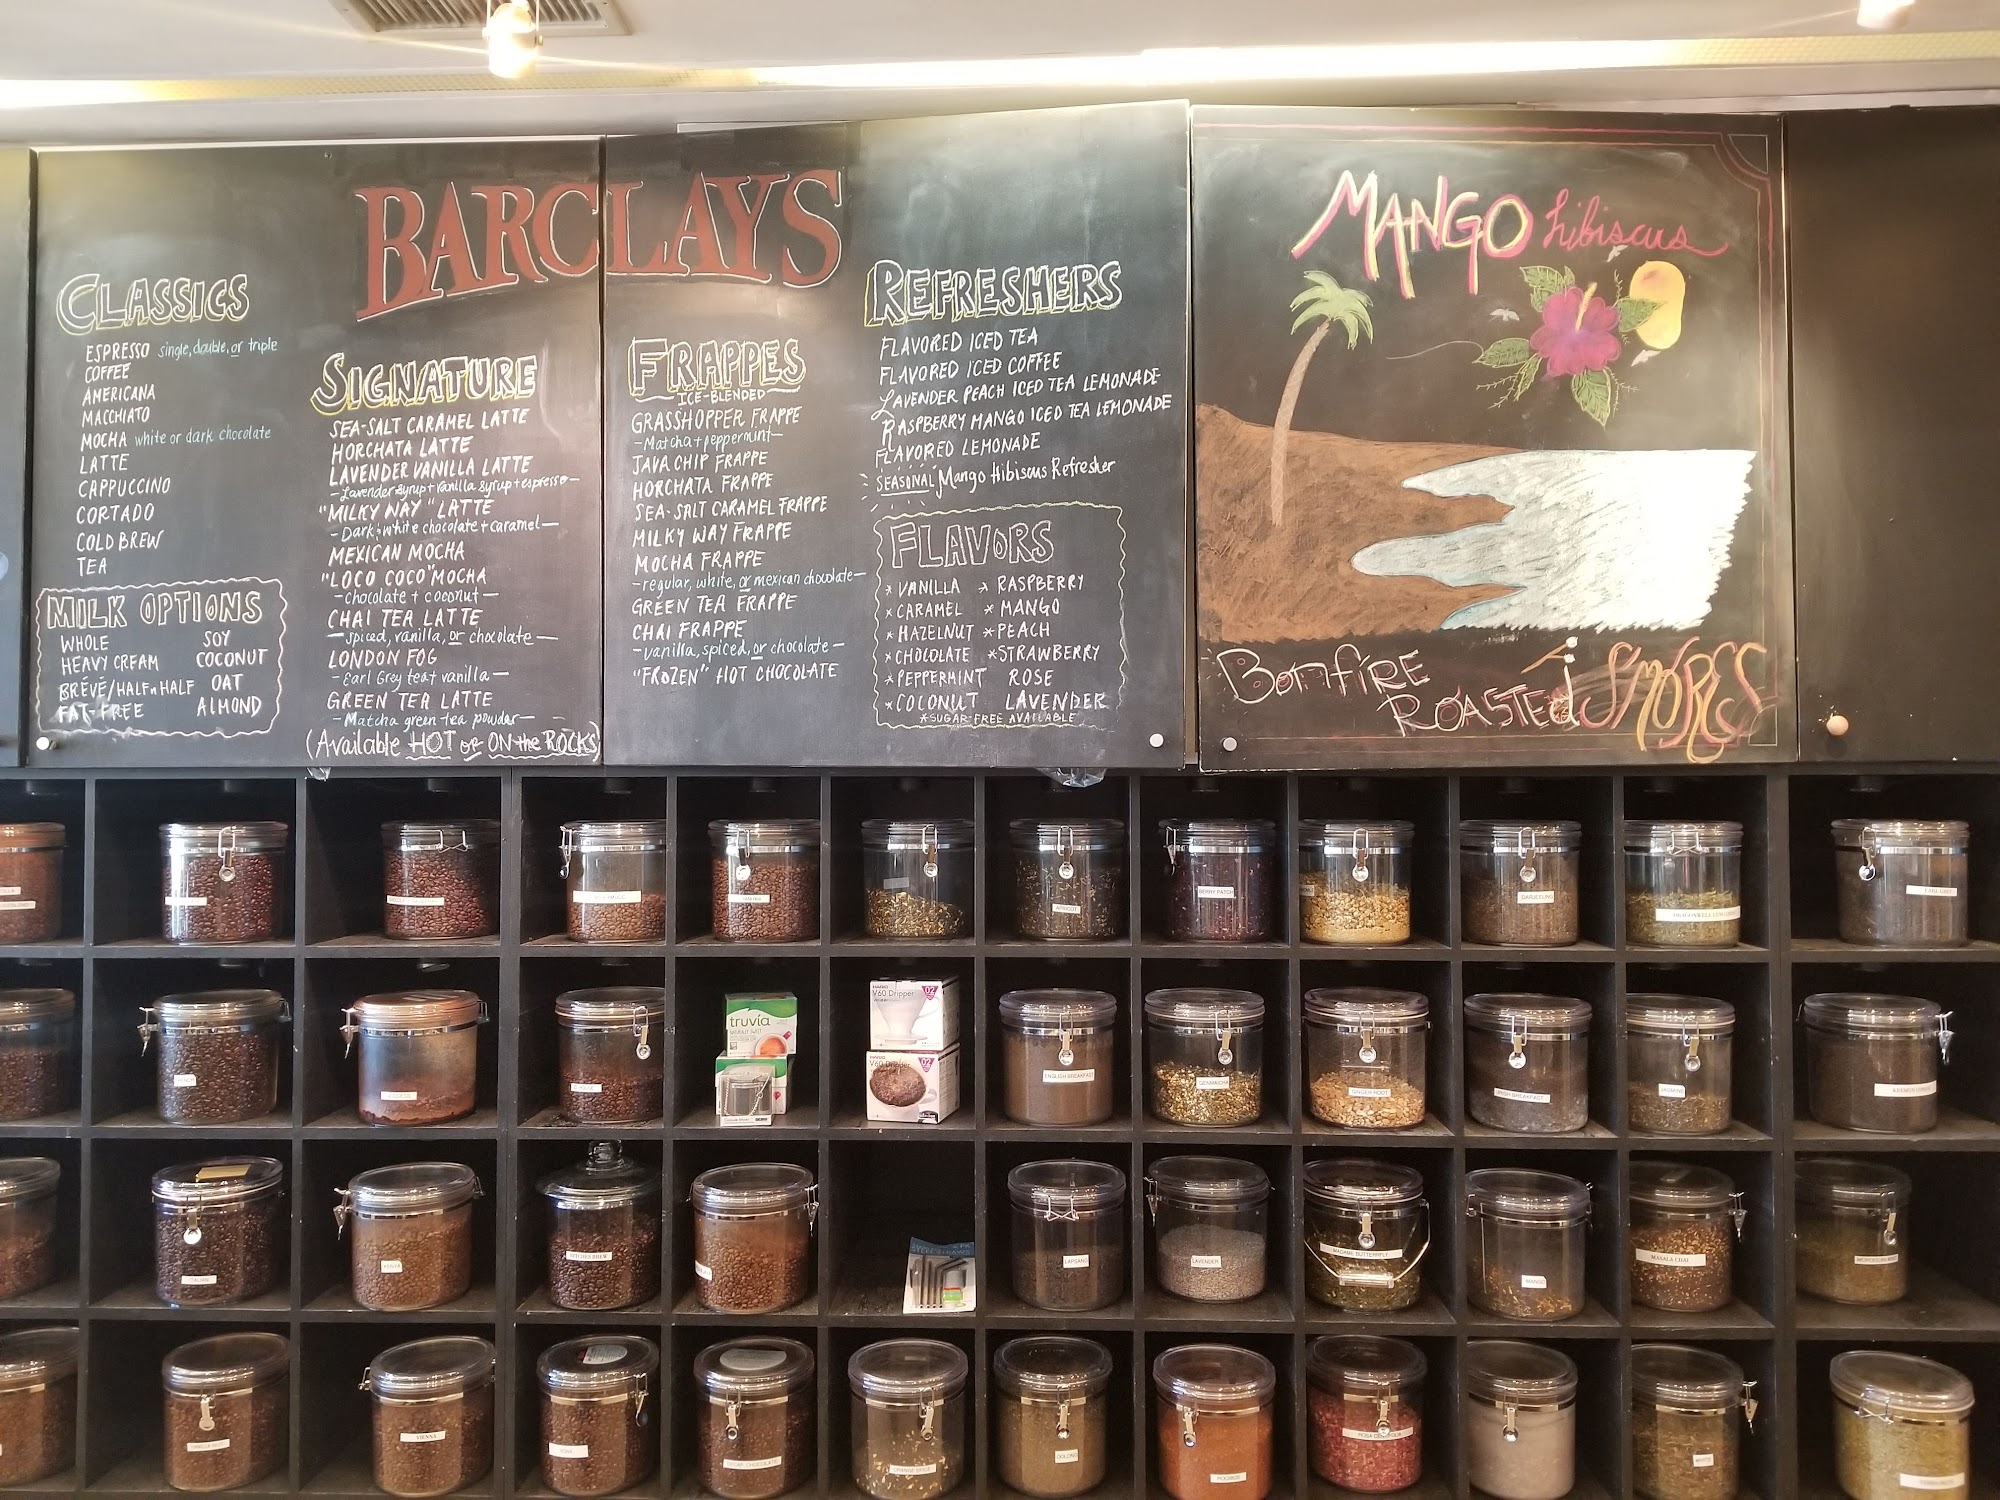 BARCLAYS
CLASSICS
ESPRESSO single, double, or triple
COFFEE
AMERICANA
MACCHIATO
MOCHA white or dark chocolate
LATTE
CAPPUCCINO
CORTADO
COLD BREW
TEA
MILK OPTIONS
WHOLE
HEAVY CREAM
BRÉVÉ/HALFnHALF
FAT-FREE
SOY
COCONUT
OAT
ALMOND
SIGNATURE
SEA-SALT CARAMEL LATTE
HORCHATA LATTE
LAVENDER VANILLA LATTE
-Lavender syrup+vanilla syrup+espresso-
"MILKY WAY" LATTE
-Dark & white chocolate + caramel-
MEXICAN MOCHA
"LOCO COCO" MOCHA
-chocolate + coconut-
CHAI TEA LATTE
-spiced, vanilla, or chocolate-
LONDON FOG
-Earl Grey tea + vanilla-
GREEN TEA LATTE
-Matcha green tea powder-
(Available HOT or ON the ROCKS)
FRAPPES
ICE-BLENDED
GRASSHOPPER FRAPPE
-Matcha + peppermint-
JAVA CHIP FRAPPE
HORCHATA FRAPPE
SEA-SALT CARAMEL FRAPPE
MILKY WAY FRAPPE
MOCHA FRAPPE
-regular, white, or mexican chocolate-
GREEN TEA FRAPPE
CHAI FRAPPE
-vanilla, spiced, or chocolate-
"FROZEN" HOT CHOCOLATE
REFRESHERS
FLAVORED ICED TEA
FLAVORED ICED COFFEE
LAVENDER PEACH ICED TEA LEMONADE
RASPBERRY MANGO ICED TEA LEMONADE
FLAVORED LEMONADE
SEASONAL Mango Hibiscus Refresher
FLAVORS
* VANILLA
* CARAMEL
* HAZELNUT
* CHOCOLATE
* PEPPERMINT
* COCONUT
* RASPBERRY
* MANGO
* PEACH
* STRAWBERRY
ROSE
LAVENDER
*SUGAR-FREE AVAILABLE
MANGO hibiscus
BonfiRE
ROASTEd SMORES
APRICOT
BERRY PATCH
DARJEELING
EARL GREY
FRENCH
truvia
HARIO
V60 Dripper
02
HARIO
V60 Dripper
02
ENGLISH BREAKFAST
GENMAICHA
GINGER ROOT
IRISH BREAKFAST
JASMINE
ITALIAN
KENYA
BITCHES BREW
LAPSANG
LAVENDER
MADAME BUTTERFLY
MANGO
MASALA CHAI
VIENNA
DECAF CHOCOLATE
ORANGE SPICE
OOLONG
ROOIBOS
WHITE